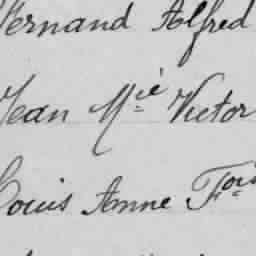 Fernand Alfred
Jean Mie Victor
Louis Anne Fois